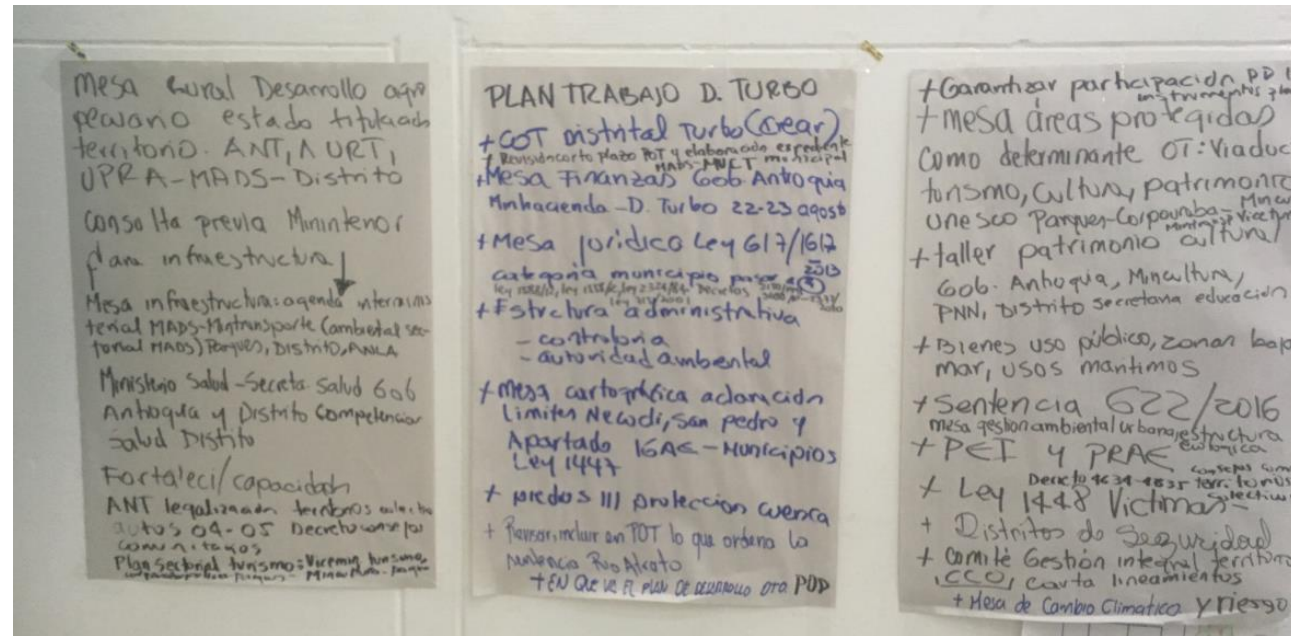 Mesa Rural Desarrollo agro
pecuario estado titulación
territorio. ANT, URT,
UPRA-MADS-Distrito
Consulta previa Mininterior
para infraestructura
Mesa infraestructura: agenda interminis
terial MADS-Mintransporte (ambiental sec-
torial MADS) Parques, DISTRITO, ANLA
Ministerio Salud-Secreta Salud Gob
Antioquia y Distrito Competencias
Salud Distrito
Fortaleci/capacidad
ANT legalización territorios colectivo
autos 04-05 Decreto consejos
comunitarios
Plan Sectorial turismo: Vicemin turismo,
PLAN TRABAJO D. TURBO
+ COT Distrital Turbo (Crear)
+ Revisión corto plazo POT y elaboración expediente
municipal
+ Mesa Finanzas Gob Antioquia
Minhacienda-D. Turbo 22-23 agosto
+ Mesa jurídico Ley 617/1617
2013
categoría municipio pasar a
+ Estructura administrativa
- contraloria
- autoridad ambiental
+ mesa cartográfica aclaración
Limites Necocli, San pedro y
Apartado IGAC-Municipios
Ley 1447
+ predios 111 proteccion cuenca
+ Revisar, incluir en POT lo que ordena la
sentencia Rio Atrato
+ EN QUE VA EL PLAN DE DESARROLLO OTRO PDD
+ Garantizar participación PD
instrumentos
+ mesa áreas protegidas
como determinante OT: Viaduc
turismo, Cultura, patrimonio
Unesco Parques-Corpouraba-
+ taller patrimonio cultural
Gob. Antioquia, Mincultura,
PNN, Distrito secretaria educación
+ Bienes uso público, zonas baja
mar, usos maritimos
+ Sentencia 622/2016
mesa gestion ambiental urbana, estructura
ecologica
+ PEI y PRAE
Decreto 4634-4635 territorios
+ Ley 1448 Victimas-
colectivos
+ Distritos de Seguridad
+ Comité Gestión integral territorio
CCO, carta lineamientos
+ Mesa de Cambio Climatico y riesgo